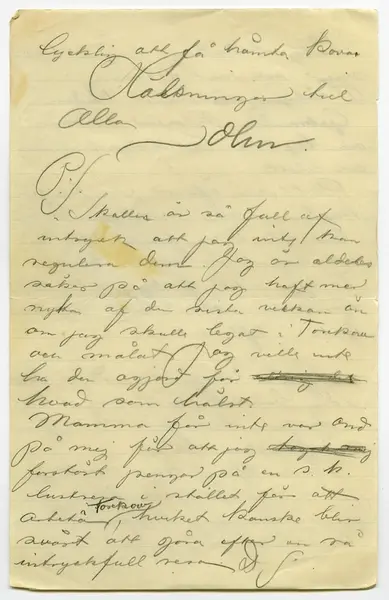 lycklig att få hämta Bovar
Hälsningar till
Alla
John.
P.S.
i Skallen är så full af
intryck att jag inte kan
regulera dem Jag är alldeles
säker på att jag haft mer
nytta af den sista veckan än
om jag skulle legat i Tourkow
och målat Jag ville inte
ha den ogjord för
hvad som hälst.
Mamma får inte var ond
på mej för att jag
förstört pengar på en s.k.
lustresa i stället för att
arbeta, hvilket kanske blir
svårt att göra efter en så
intryckfull resa D.S.